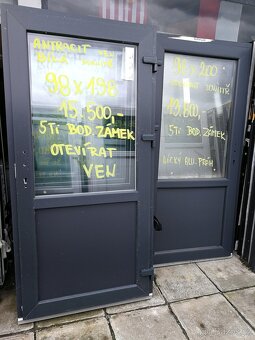 ANTRACIT
BÍLÁ
98 x 198
15.500,-
5TI BOD. ZÁMEK
OTEVÍRAT
VEN
98 x 200
19.800,-
5TI BOD. ZÁMEK